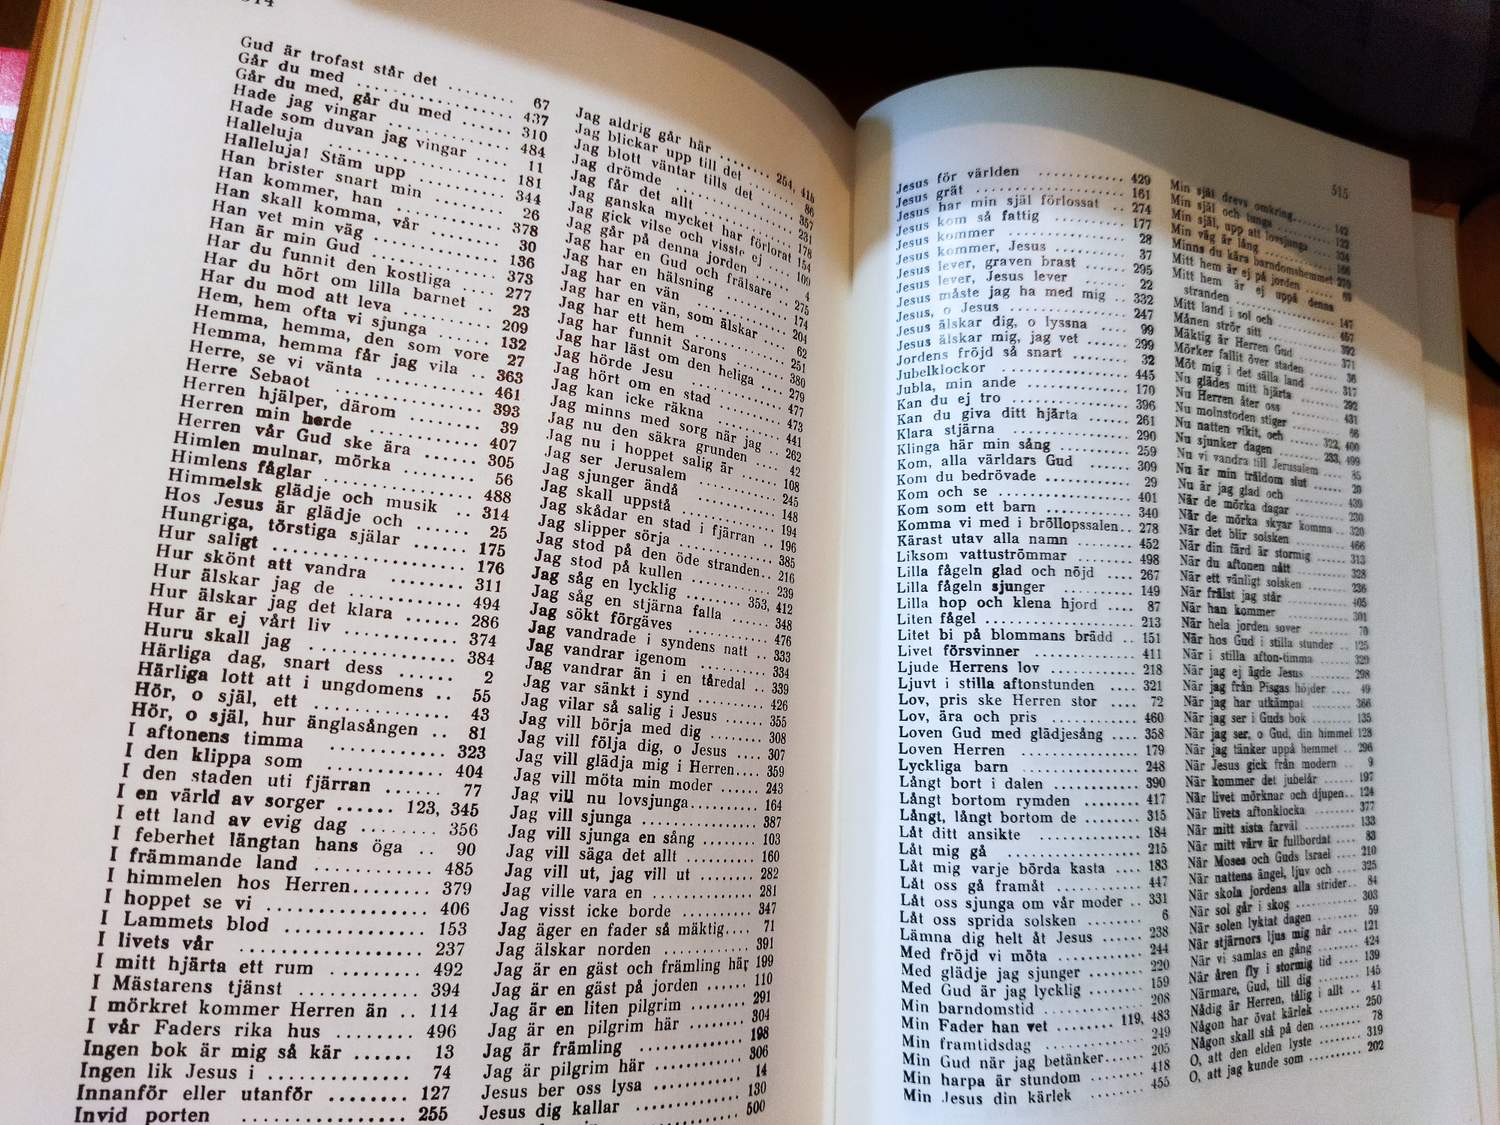 514
Gud är trofast står det ........ 67
Går du med .................. 437
Går du med, går du med ...... 310
Hade jag vingar ............. 484
Hade som duvan jag vingar .... 11
Halleluja ................... 181
Halleluja! Stäm upp ......... 344
Han brister snart min ........ 26
Han kommer, han ............. 378
Han skall komma, vår ......... 30
Han vet min väg ............. 136
Han är min Gud .............. 373
Har du funnit den kostliga ... 277
Har du hört om lilla barnet .. 23
Har du mod att leva ......... 209
Hem, hem ofta vi sjunga ..... 132
Hemma, hemma, den som vore 27
Hemma, hemma får jag vila .. 363
Herre, se vi vänta .......... 461
Herre Sebaot ................ 393
Herren hjälper, därom ........ 39
Herren min herde ............ 407
Herren vår Gud ske ära ...... 305
Himlen mulnar, mörka ........ 56
Himlens fåglar .............. 488
Himmelsk glädje och musik .. 314
Hos Jesus är glädje och ..... 25
Hungriga, törstiga själar ...... 175
Hur saligt .................. 176
Hur skönt att vandra ........ 311
Hur älskar jag de ............ 494
Hur älskar jag det klara ...... 286
Hur är ej vårt liv ............ 374
Huru skall jag ............... 384
Härliga dag, snart dess ...... 2
Härliga lott att i ungdomens .. 55
Hör, o själ, ett .............. 43
Hör, o själ, hur änglasången .. 81
I aftonens timma ............ 323
I den klippa som ............ 404
I den staden uti fjärran ...... 77
I en värld av sorger ...... 123, 345
I ett land av evig dag ........ 356
I feberhet längtan hans öga .. 90
I främmande land ............ 485
I himmelen hos Herren........ 379
I hoppet se vi ................ 406
I Lammets blod .............. 153
I livets vår .................. 237
I mitt hjärta ett rum ......... 492
I Mästarens tjänst ............ 394
I mörkret kommer Herren än .. 114
I vår Faders rika hus ........ 496
Ingen bok är mig så kär ...... 13
Ingen lik Jesus i .............. 74
Innanför eller utanför ........ 127
Invid porten ................ 255
Jag aldrig går här ........ 254, 415
Jag blickar upp till det ........ 86
Jag blott väntar tills det ...... 357
Jag drömde ................. 231
Jag får det allt .............. 178
Jag ganska mycket har förlorat 154
Jag gick vilse och visste ej .... 109
Jag går på denna jorden ...... 4
Jag har en Gud och frälsare .. 275
Jag har en hälsning .......... 174
Jag har en vän .............. 204
Jag har en vän, som älskar .... 62
Jag har ett hem .............. 251
Jag har funnit Sarons ........ 380
Jag har läst om den heliga .... 279
Jag hörde Jesu .............. 477
Jag hört om en stad .......... 473
Jag kan icke räkna .......... 441
Jag minns med sorg när jag .. 262
Jag nu den säkra grunden .... 42
Jag nu i hoppet salig är ...... 108
Jag ser Jerusalem ............ 245
Jag sjunger ändå ............ 148
Jag skall uppstå ............. 194
Jag skådar en stad i fjärran .. 196
Jag slipper sörja ............. 385
Jag stod på den öde stranden.. 216
Jag stod på kullen ........... 239
Jag såg en lycklig ........ 353, 412
Jag såg en stjärna falla ...... 348
Jag sökt förgäves ............ 476
Jag vandrade i syndens natt .. 333
Jag vandrar igenom .......... 334
Jag vandrar än i en tåredal .. 339
Jag var sänkt i synd .......... 426
Jag vilar så salig i Jesus ...... 355
Jag vill börja med dig ........ 308
Jag vill följa dig, o Jesus .... 307
Jag vill glädja mig i Herren.... 359
Jag vill möta min moder ...... 243
Jag vill nu lovsjunga.......... 164
Jag vill sjunga ................ 387
Jag vill sjunga en sång ...... 103
Jag vill säga det allt .......... 160
Jag vill ut, jag vill ut ........ 282
Jag ville vara en ............. 281
Jag visst icke borde .......... 347
Jag äger en fader så mäktig.... 71
Jag älskar norden ............ 391
Jag är en gäst och främling här 199
Jag är en gäst på jorden ...... 110
Jag är en liten pilgrim ........ 291
Jag är en pilgrim här ........ 304
Jag är främling .............. 198
Jag är pilgrim här ............ 306
Jesus ber oss lysa ............ 14
Jesus dig kallar .............. 130
500
515
Jesus för världen ............ 429
Jesus gråt ................... 161
Jesus har min själ förlossat .. 274
Jesus kom så fattig .......... 177
Jesus kommer ............... 28
Jesus kommer, Jesus ......... 37
Jesus lever, graven brast ..... 295
Jesus lever, Jesus lever ...... 22
Jesus måste jag ha med mig .. 332
Jesus, o Jesus ............... 247
Jesus älskar dig, o lyssna .... 99
Jesus älskar mig, jag vet ...... 299
Jordens fröjd så snart ........ 32
Jubelklockor ................ 445
Jubla, min ande ............. 170
Kan du ej tro ............... 396
Kan du giva ditt hjärta ...... 261
Klara stjärna ................ 290
Klinga här min sång ......... 259
Kom, alla världars Gud ...... 309
Kom du bedrövade ........... 29
Kom och se ................. 401
Kom som ett barn ........... 340
Komma vi med i bröllopssalen.. 278
Kärast utav alla namn ........ 452
Liksom vattuströmmar ....... 498
Lilla fågeln glad och nöjd .... 267
Lilla fågeln sjunger .......... 149
Lilla hop och klena hjord .... 87
Liten fågel .................. 213
Litet bi på blommans brädd .. 151
Livet försvinner ............. 411
Ljude Herrens lov ........... 218
Ljuvt i stilla aftonstunden .... 321
Lov, pris ske Herren stor .... 72
Lov, ära och pris ............ 460
Loven Gud med glädjesång .... 358
Loven Herren ............... 179
Lyckliga barn ............... 248
Långt bort i dalen ........... 390
Långt bortom rymden ........ 417
Långt, långt bortom de ....... 315
Låt ditt ansikte ............. 184
Låt mig gå ................. 215
Låt mig varje börda kasta .... 183
Låt oss gå framåt ............ 447
Låt oss sjunga om vår moder .. 331
Låt oss sprida solsken ........ 6
Lämna dig helt åt Jesus ...... 238
Med fröjd vi möta ........... 244
Med glädje jag sjunger ........ 220
Med Gud är jag lycklig ....... 159
Min barndomstid ............. 208
Min Fader han vet ........ 119, 483
Min framtidsdag ............. 249
Min Gud när jag betänker...... 205
Min harpa är stundom ........ 418
Min Jesus din kärlek ......... 455
Min själ drevs omkring........ 142
Min själ och tunga ........... 122
Min själ, upp att lovsjunga .... 334
Min väg är lång .............. 166
Minns du kära barndomshemmet 270
Mitt hem är ej på jorden ...... 69
Mitt hem är ej uppå denna
stranden .................. 147
Mitt land i sol och ........... 457
Månen strör sitt ............. 392
Mäktig är Herren Gud ........ 371
Mörker fallit över staden ...... 36
Möt mig i det sälla land ...... 317
Nu glädes mitt hjärta ........ 292
Nu Herren åter oss .......... 431
Nu molnstoden stiger ......... 66
Nu natten vikit, och ...... 322, 400
Nu sjunker dagen ........ 233, 499
Nu vi vandra till Jerusalem .... 85
Nu är min träldom slut ....... 20
Nu är jag glad och ........... 439
När de mörka dagar .......... 230
När de mörka skyar komma .. 320
När det blir solsken .......... 466
När din färd är stormig ...... 313
När du aftonen nått .......... 328
När ett vänligt solsken ........ 236
När frälst jag står ............ 405
När han kommer ............ 301
När hela jorden sover ........ 70
När hos Gud i stilla stunder .. 125
När i stilla afton-timma ...... 329
När jag ej ägde Jesus ........ 298
När jag från Pisgas höjder .... 49
När jag har utkämpat ........ 366
När jag ser i Guds bok ........ 135
När jag ser, o Gud, din himmel 128
När jag tänker uppå hemmet .. 296
När Jesus gick från modern .. 9
När kommer det jubelår ...... 197
När livet mörknar och djupen.. 124
När livets aftonklocka ........ 377
När mitt sista farväl ......... 133
När mitt värv är fullbordat .... 83
När Moses och Guds Israel .... 210
När nattens ängel, ljuv och .... 325
När skola jordens alla strider.. 84
När sol går i skog ............ 303
När solen lyktat dagen ........ 59
När stjärnors ljus mig når .... 121
När vi samlas en gång ........ 424
När åren fly i stormig tid .... 139
Närmare, Gud, till dig ........ 145
Nådig är Herren, tålig i allt .. 41
Någon har övat kärlek ........ 250
Någon skall stå på den ........ 78
O, att den elden lyste ........ 319
O, att jag kunde som .......... 202